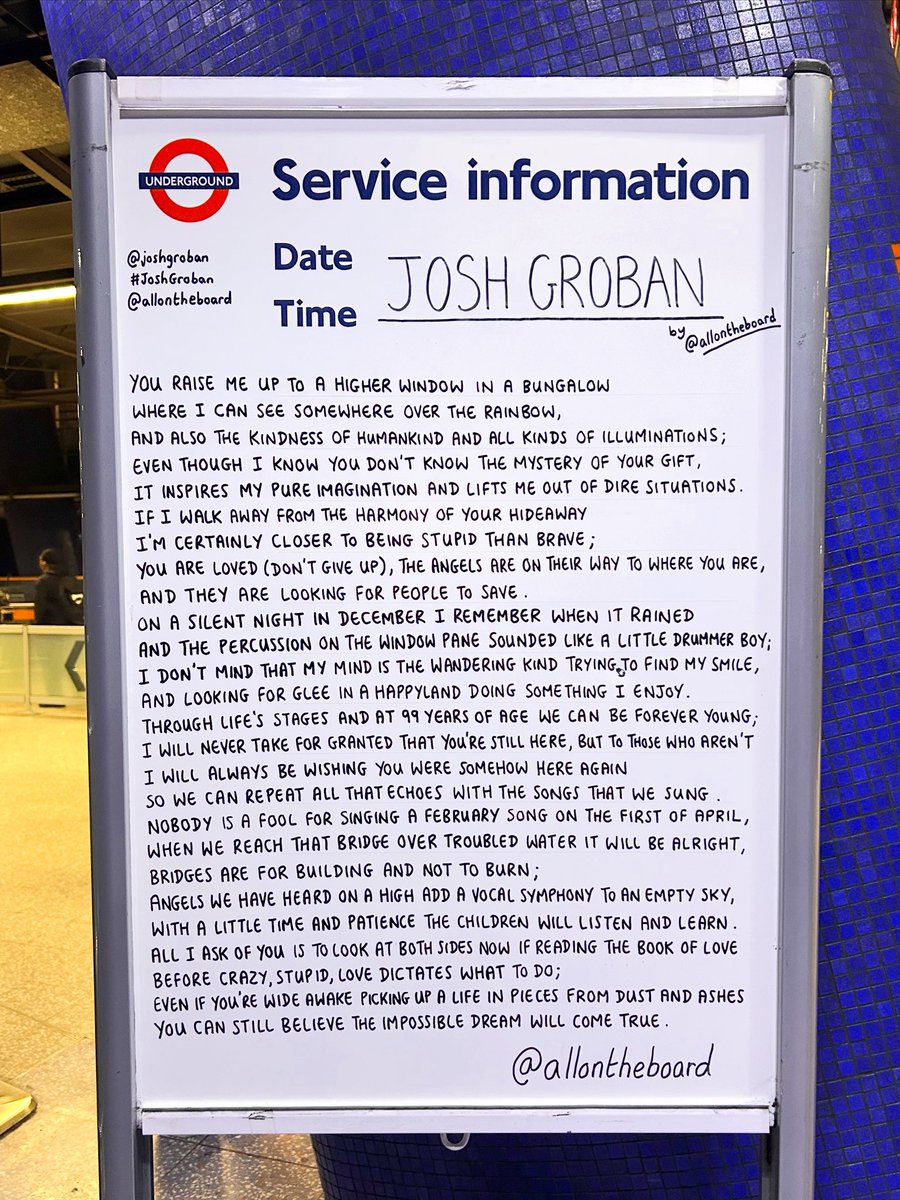 UNDERGROUND
Service information
@joshgroban
#JoshGroban
@allontheboard
Date
Time
JOSH GROBAN
by @allontheboard
YOU RAISE ME UP TO A HIGHER WINDOW IN A BUNGALOW
WHERE I CAN SEE SOMEWHERE OVER THE RAINBOW,
AND ALSO THE KINDNESS OF HUMANKIND AND ALL KINDS OF ILLUMINATIONS;
EVEN THOUGH I KNOW YOU DON'T KNOW THE MYSTERY OF YOUR GIFT,
IT INSPIRES MY PURE IMAGINATION AND LIFTS ME OUT OF DIRE SITUATIONS.
IF I WALK AWAY FROM THE HARMONY OF YOUR HIDEAWAY
I'M CERTAINLY CLOSER TO BEING STUPID THAN BRAVE;
YOU ARE LOVED (DON'T GIVE UP), THE ANGELS ARE ON THEIR WAY TO WHERE YOU ARE,
AND THEY ARE LOOKING FOR PEOPLE TO SAVE.
ON A SILENT NIGHT IN DECEMBER I REMEMBER WHEN IT RAINED
AND THE PERCUSSION ON THE WINDOW PANE SOUNDED LIKE A LITTLE DRUMMER BOY;
I DON'T MIND THAT MY MIND IS THE WANDERING KIND TRYING TO FIND MY SMILE,
AND LOOKING FOR GLEE IN A HAPPYLAND DOING SOMETHING I ENJOY.
THROUGH LIFE'S STAGES AND AT 99 YEARS OF AGE WE CAN BE FOREVER YOUNG;
I WILL NEVER TAKE FOR GRANTED THAT YOU'RE STILL HERE, BUT TO THOSE WHO AREN'T
I WILL ALWAYS BE WISHING YOU WERE SOMEHOW HERE AGAIN
SO WE CAN REPEAT ALL THAT ECHOES WITH THE SONGS THAT WE SUNG.
NOBODY IS A FOOL FOR SINGING A FEBRUARY SONG ON THE FIRST OF APRIL,
WHEN WE REACH THAT BRIDGE OVER TROUBLED WATER IT WILL BE ALRIGHT,
BRIDGES ARE FOR BUILDING AND NOT TO BURN;
ANGELS WE HAVE HEARD ON A HIGH ADD A VOCAL SYMPHONY TO AN EMPTY SKY,
WITH A LITTLE TIME AND PATIENCE THE CHILDREN WILL LISTEN AND LEARN.
ALL I ASK OF YOU IS TO LOOK AT BOTH SIDES NOW IF READING THE BOOK OF LOVE
BEFORE CRAZY, STUPID, LOVE DICTATES WHAT TO DO;
EVEN IF YOU'RE WIDE AWAKE PICKING UP A LIFE IN PIECES FROM DUST AND ASHES
YOU CAN STILL BELIEVE THE IMPOSSIBLE DREAM WILL COME TRUE.
@allontheboard